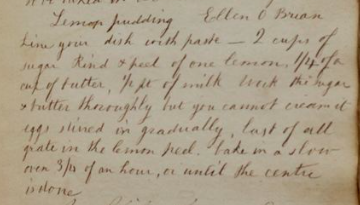 Lemon pudding Ellen O Brian
Line your dish with paste — 2 cups of
sugar Rind & peel of one lemon, 1/4 of a
cup of butter, 1/2 pt of milk Work the sugar
& butter thoroughly but you cannot cream it
eggs stirred in gradually, last of all
grate in the lemon peel. bake in a slow
oven 3/4 of an hour, or until the centre
is done